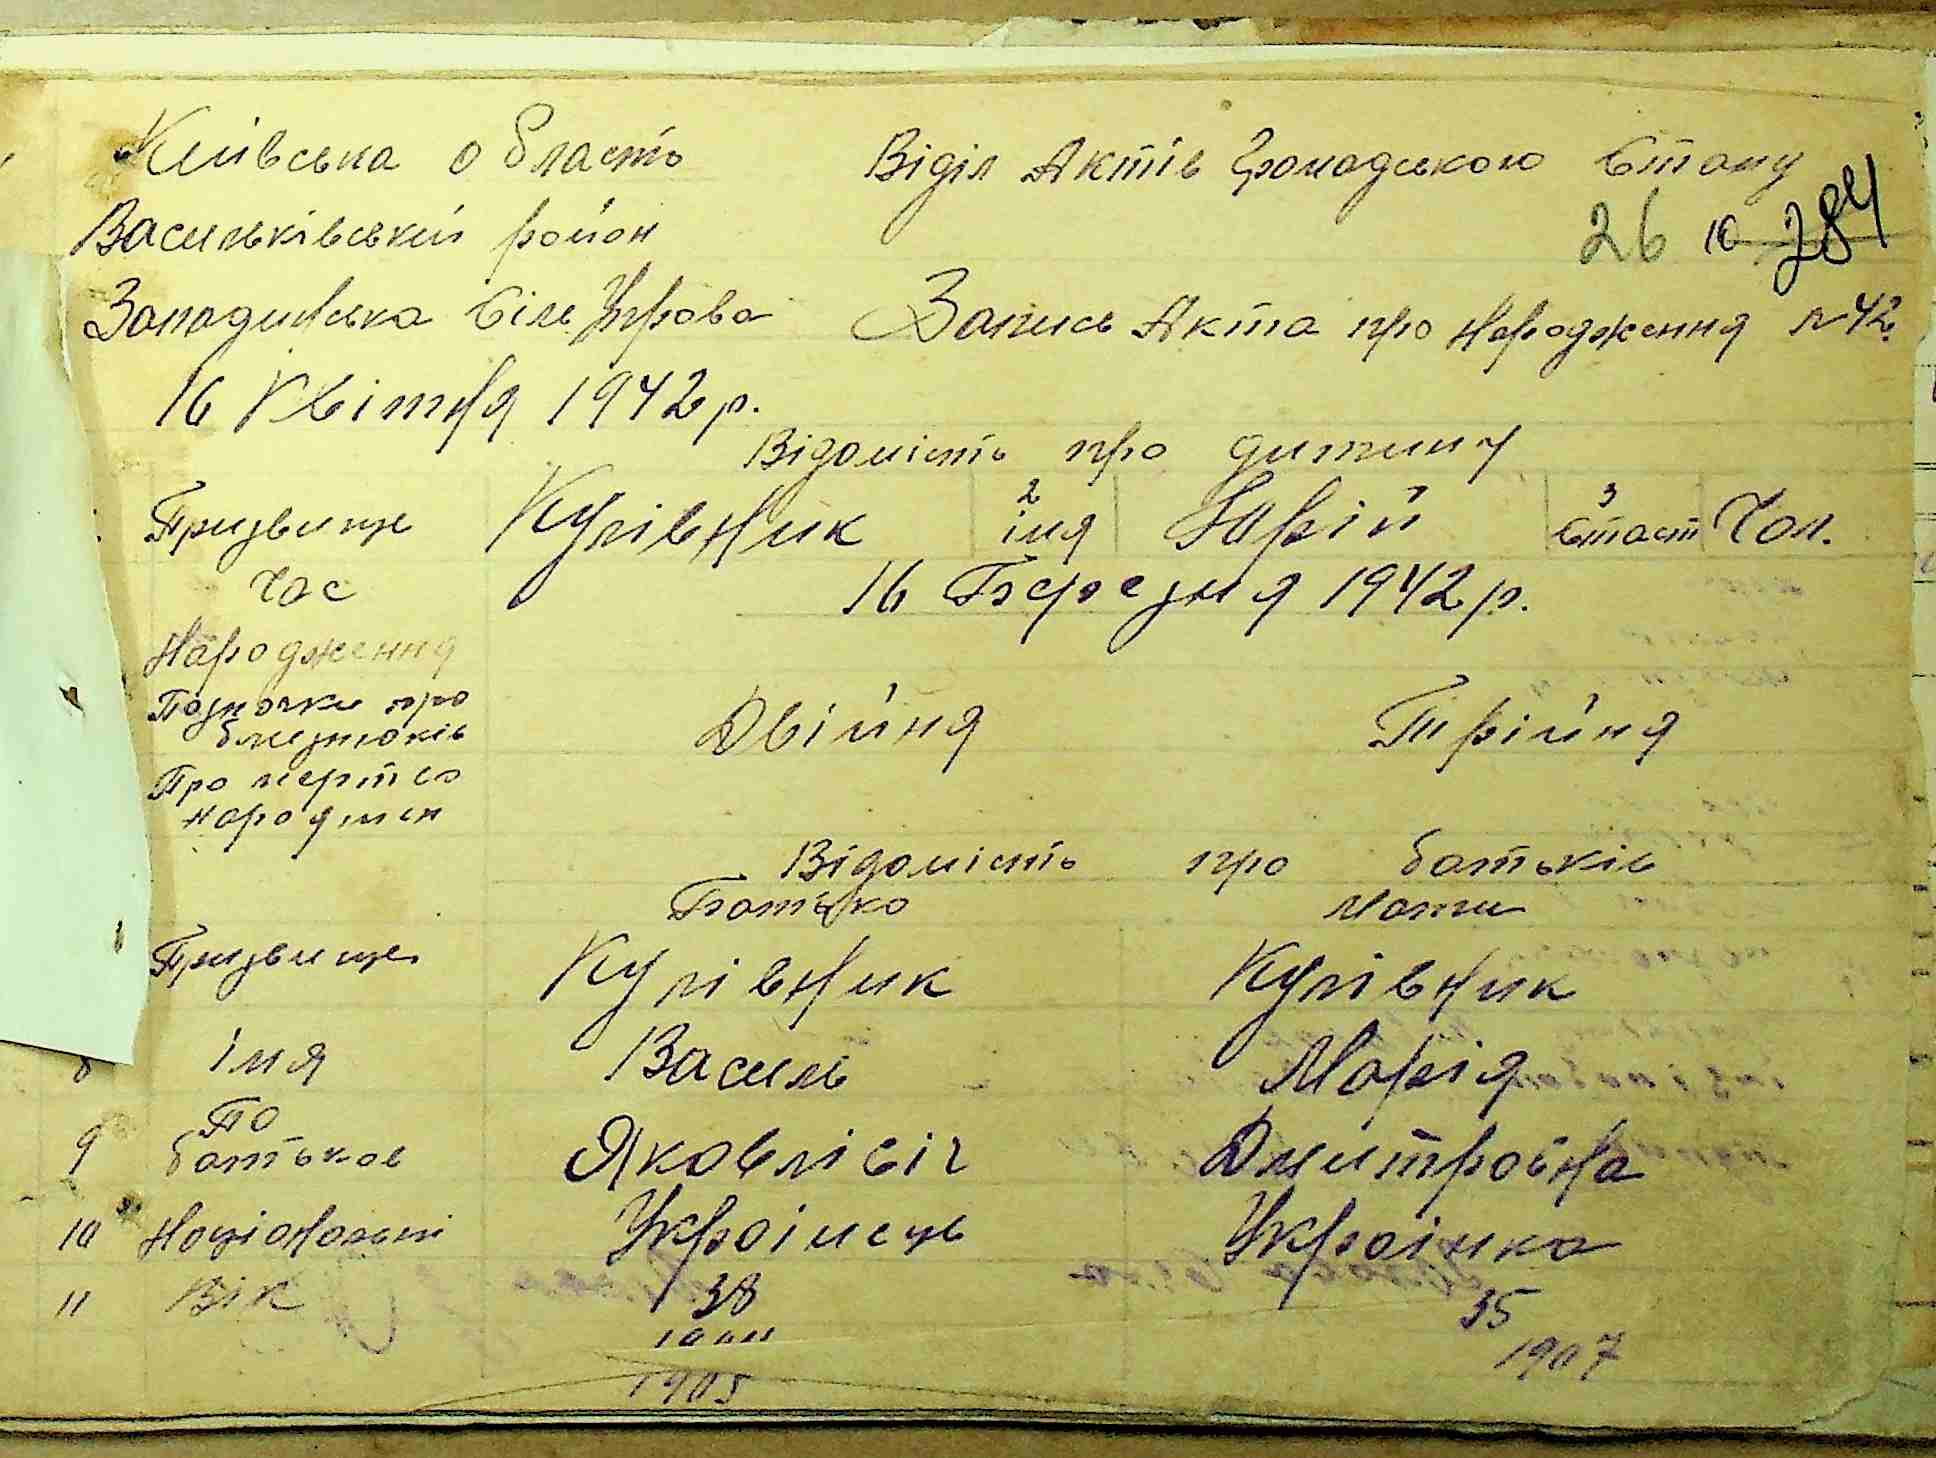 Київська область Віділ Актів Громадського Стану
Васильківський район 26 10 284
Западинська Сіль Управа Запись Акта про Народження №42.
16 Квітня 1942 р.
Відомість про дитину
Призвище Кулівник 2 імя Юрій 3 Стать Чол.
Час 16 Березня 1942 р.
Народження
Позночки про близнюків Двійня Трійня
Про мертво народжен
Відомість про батьків
Батько Мати
Призвище Кулівник Кулівник
8 імя Василь Марія
9 По батькові Яковлівіч Дмитровна
10 Національні Українець Українка
11 Вік 38 35
1905 1907